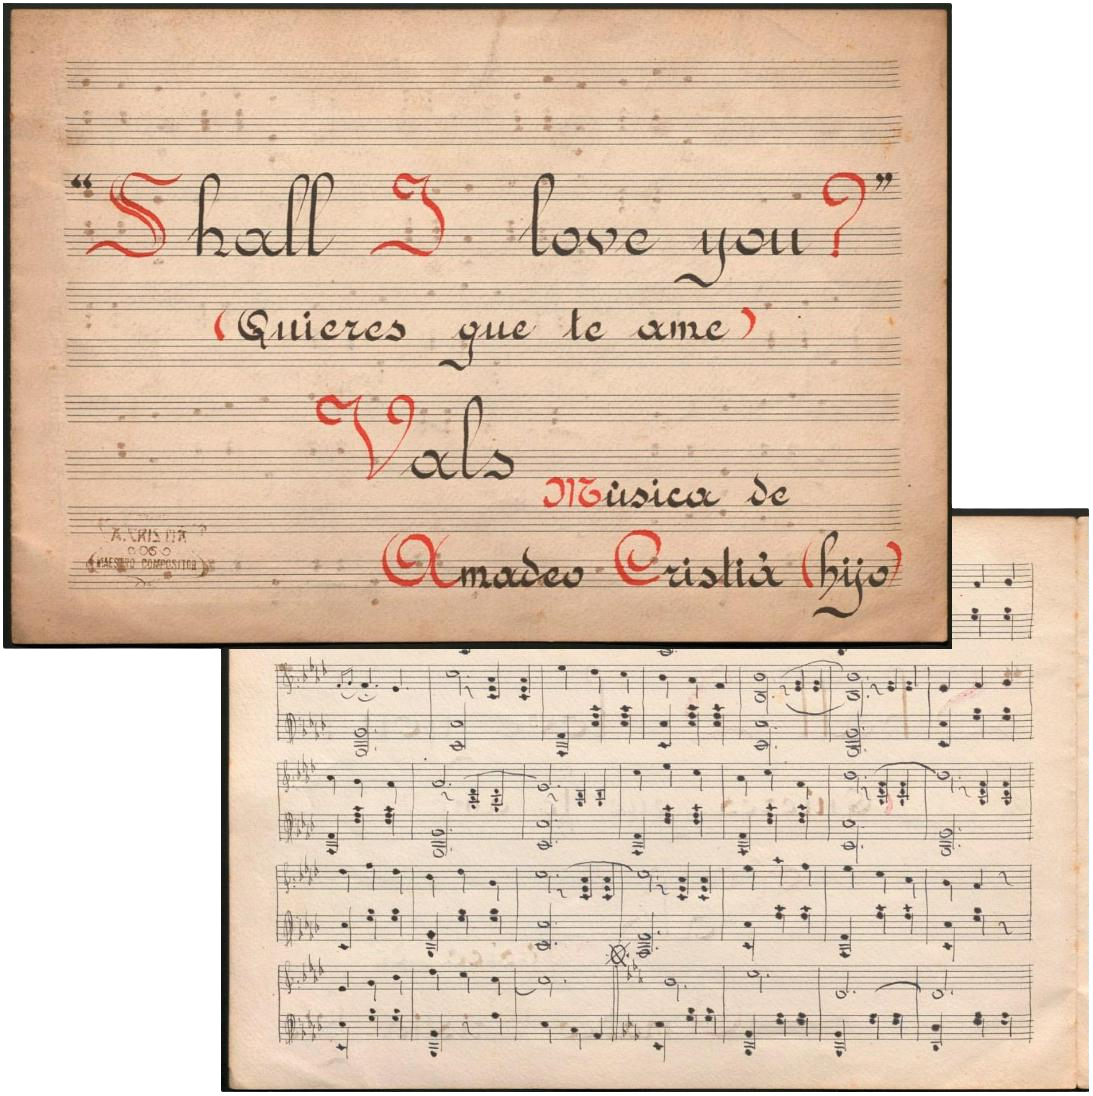 “Shall I love you?”
(Quieres que te ame)
Vals
Música de
Amadeo Cristiá (hijo)
A. CRISTIÁ
MAESTRO COMPOSITOR